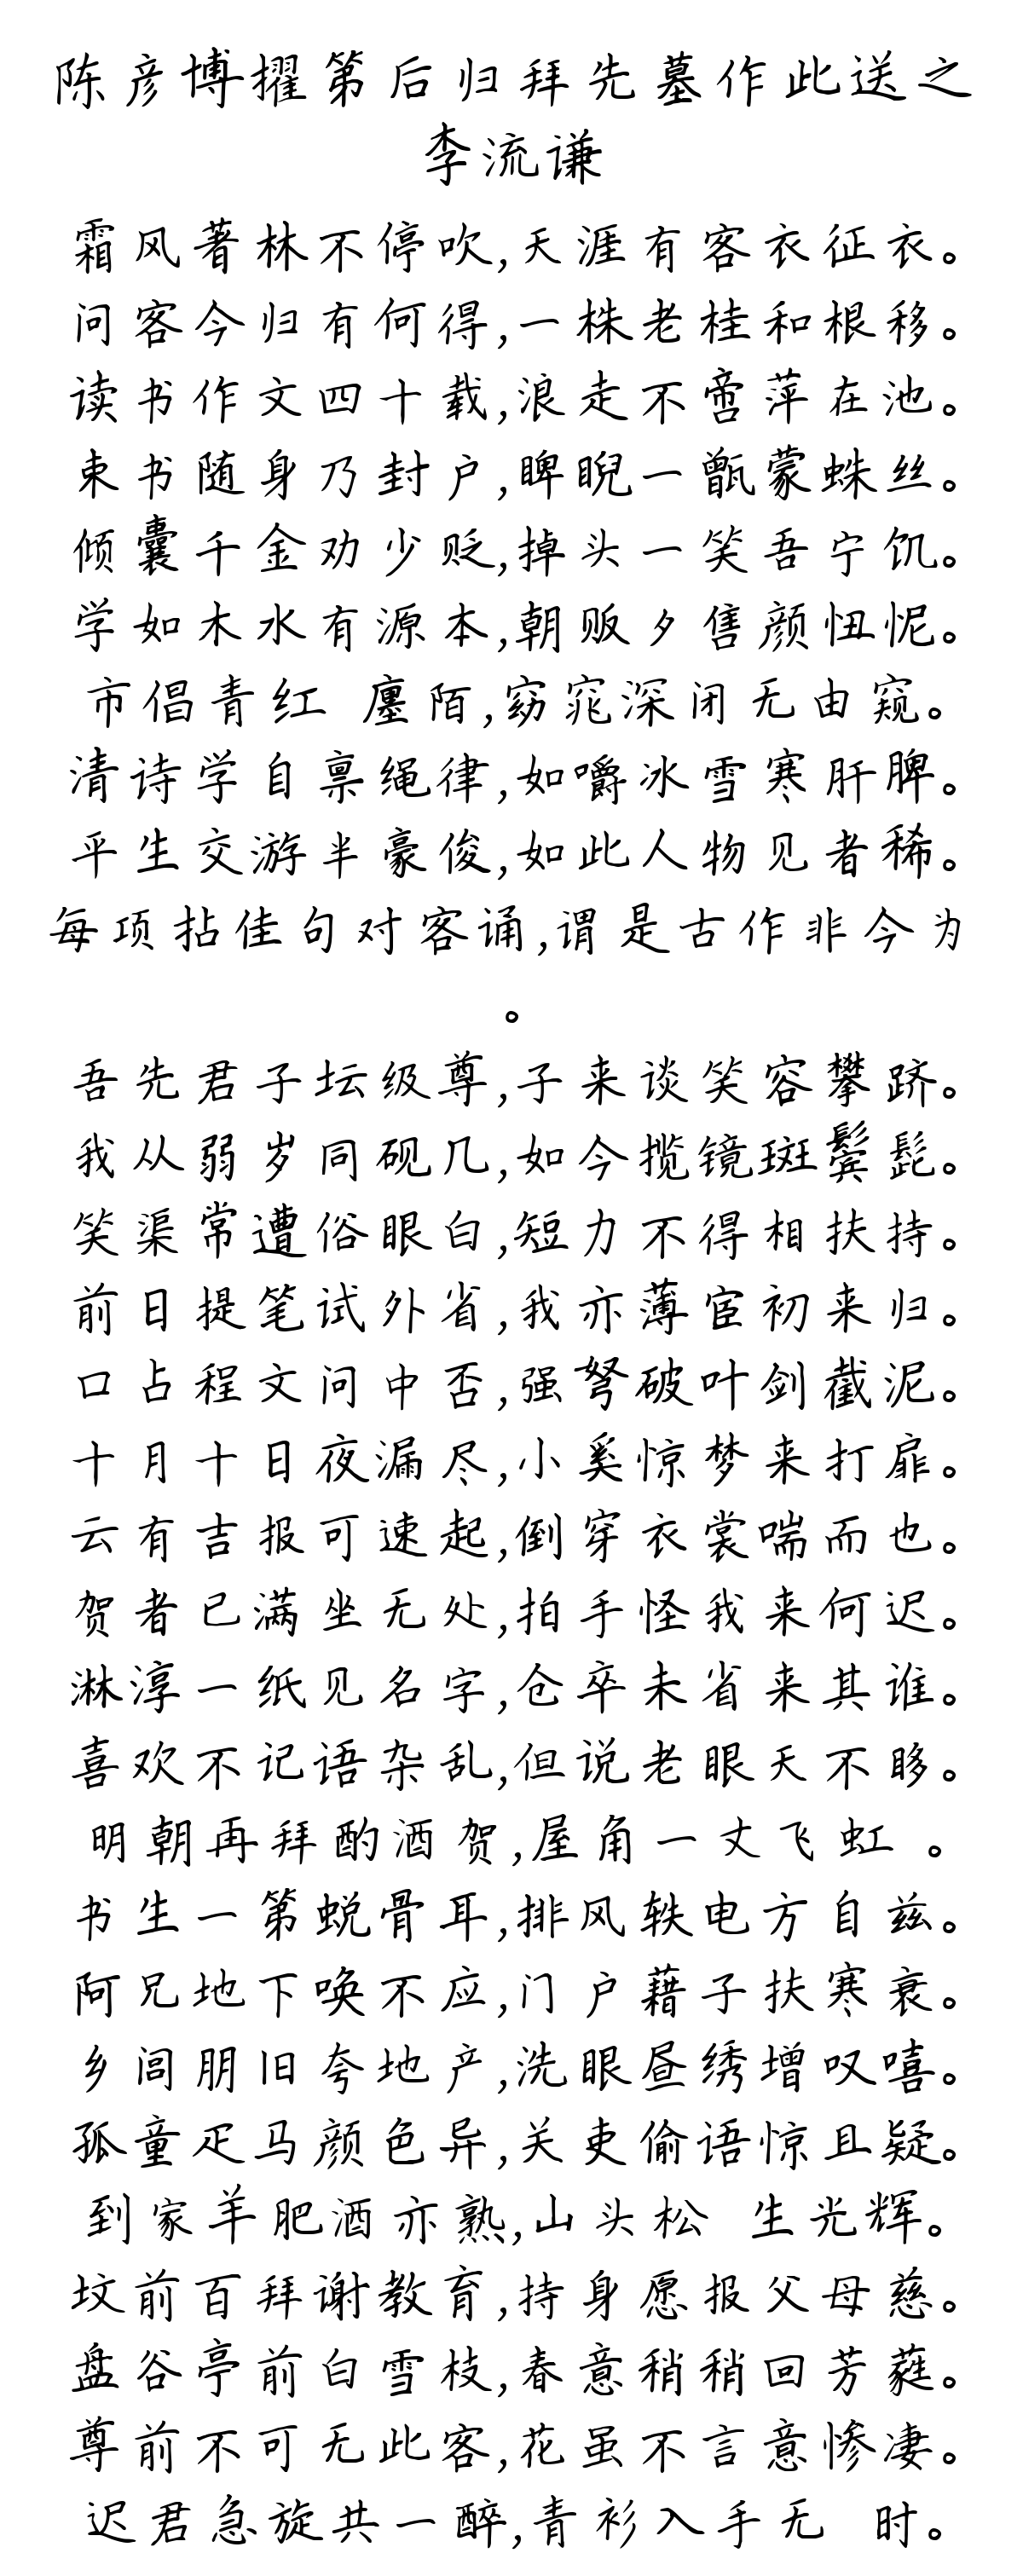 陈彦博擢第后归拜先墓作此送之
李流谦
霜风著林不停吹,天涯有客衣征衣。
问客今归有何得,一株老桂和根移。
读书作文四十载,浪走不啻萍在池。
束书随身乃封户,睥睨一甑蒙蛛丝。
倾囊千金劝少贬,掉头一笑吾宁饥。
学如木水有源本,朝贩夕售颜忸怩。
市倡青红 廛陌,窈窕深闭无由窥。
清诗学自禀绳律,如嚼冰雪寒肝脾。
平生交游半豪俊,如此人物见者稀。
每项拈佳句对客诵,谓是古作非今为
。
吾先君子坛级尊,子来谈笑容攀跻。
我从弱岁同砚几,如今揽镜斑鬓髭。
笑渠常遭俗眼白,短力不得相扶持。
前日提笔试外省,我亦薄宦初来归。
口占程文问中否,强弩破叶剑截泥。
十月十日夜漏尽,小奚惊梦来打扉。
云有吉报可速起,倒穿衣裳喘而也。
贺者已满坐无处,拍手怪我来何迟。
淋淳一纸见名字,仓卒未省来其谁。
喜欢不记语杂乱,但说老眼天不眵。
明朝再拜酌酒贺,屋角一丈飞虹 。
书生一第蜕骨耳,排风轶电方自兹。
阿兄地下唤不应,门户藉子扶寒衰。
乡闾朋旧夸地产,洗眼昼绣增叹嘻。
孤童疋马颜色异,关吏偷语惊且疑。
到家羊肥酒亦熟,山头松 生光辉。
坟前百拜谢教育,持身愿报父母慈。
盘谷亭前白雪枝,春意稍稍回芳蕤。
尊前不可无此客,花虽不言意惨凄。
迟君急旋共一醉,青衫入手无 时。